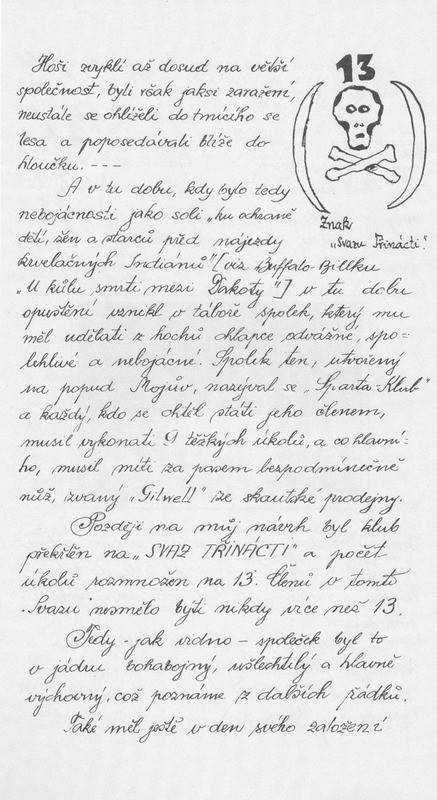 Hoši zvyklí až dosud na větší
společnost, byli však jaksi zaražení,
neustále se ohlíželi do tmícího se
lesa a poposedávali blíže do
hloučku. ---
A v tu dobu, kdy bylo tedy
nebojácnosti jako soli „ku ochraně
dětí, žen a starců před nájezdy
krvelačných Indiánů" [viz Buffalo-Billku
„U kůlu smrti mezi Dakoty"] v tu dobu
opuštění vznikl v táboře spolek, který mu
měl udělati z hochů chlapce odvážné, spo=
lehlivé a nebojácné. Spolek ten, utvořený
na popud Mojův, nazýval se „Sparta-Klub"
a každý, kdo se chtil státi jeho členem,
musil vykonati 9 těžkých úkolů, a co hlavní=
ho, musil míti za pasem bezpodmínečně
nůž, zvaný „Gilwell" ze skautské prodejny.
Později na můj návrh byl klub
překštěn na „SVAZ TŘINÁCTI" a počet
úkolů rozmnožen na 13. Členů v tomto
„Svazu" nesmělo býti nikdy více než 13.
Tedy - jak vidno - společek byl to
v jádru bohabojný, ušlechtilý a hlavně
výchovný, což poznáme z dalších řádků.
Také měl ještě v den svého založení
13
Znak
„Svazu Třinácti".